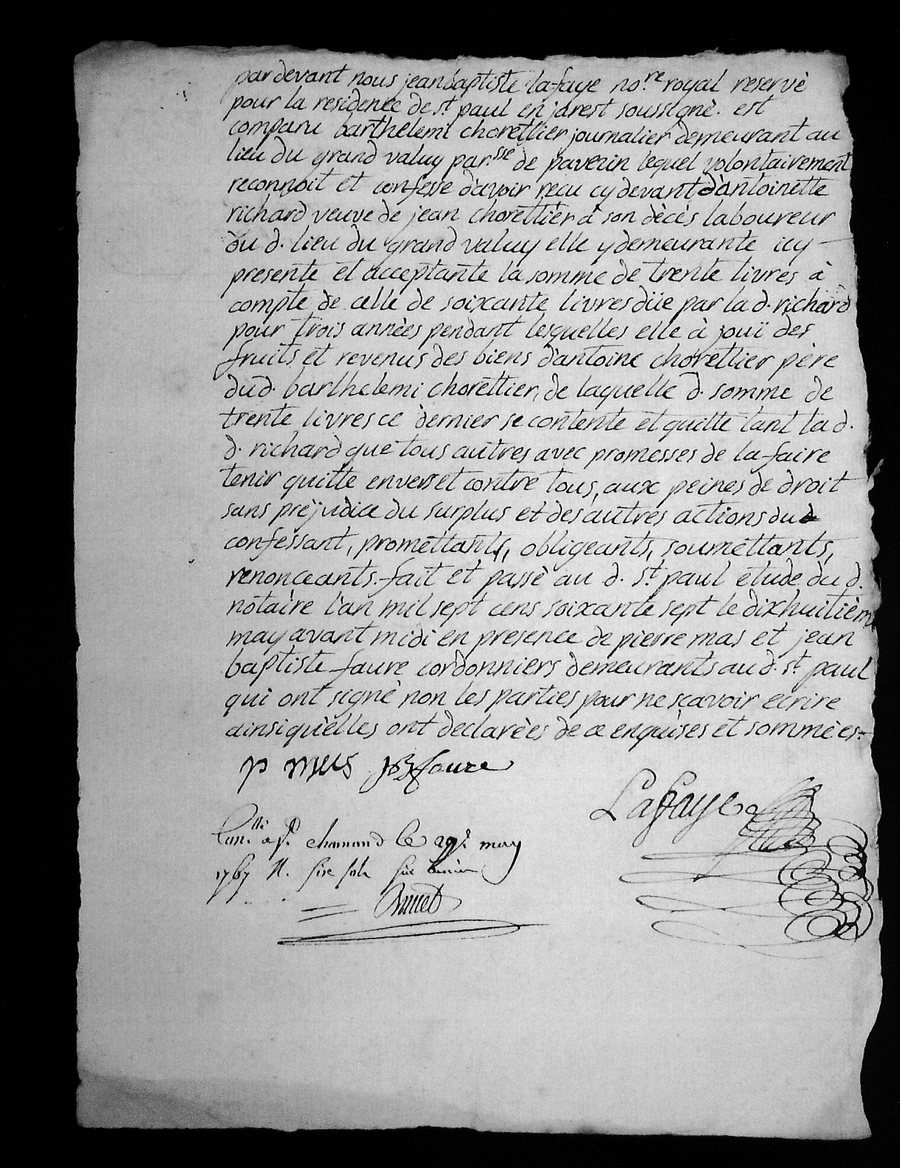 par devant nous jean baptiste lafaye no.re royal reservé
pour la residence de st. paul en jarest soussigné. est
comparu barthelemi chorettier journalier demeurant au
lieu du grand valuy par.sse de pavezin lequel volontairement
reconnoit et confesse d'avoir reçu cy devant d'antoinette
richard veuve de jean chorettier à son décès laboureur
du d. lieu du grand valuy elle y demeurante icy
presente et acceptante la somme de trente livres à
compte de celle de soixante livres düe par la d. richard
pour trois années pendant lesquelles elle à jouï des
fruits et revenus des biens d'antoine chorettier père
dud. barthelemi chorettier, de laquelle d. somme de
trente livres ce dernier se contente et quitte tant la d.
d. richard que tous autres avec promesses de la faire
tenir quitte envers et contre tous, aux peines de droit
sans préjudice du surplus et des autres actions dud
confessant, promettants, obligeants, soumettants,
renonceants. fait et passé au d. st. paul etude du d.
notaire l'an mil sept cens soixante sept le dixhuitième
may avant midi en presence de pierre mas et jean
baptiste faure cordonniers demeurants au d. st. paul
qui ont signé non les parties pour ne scavoir ecrire
ainsi qu'elles ont declarées de ce enquises et sommées.
p mas jb faure
Lafaye
Con.lle a st. chamond le may
1767 R.